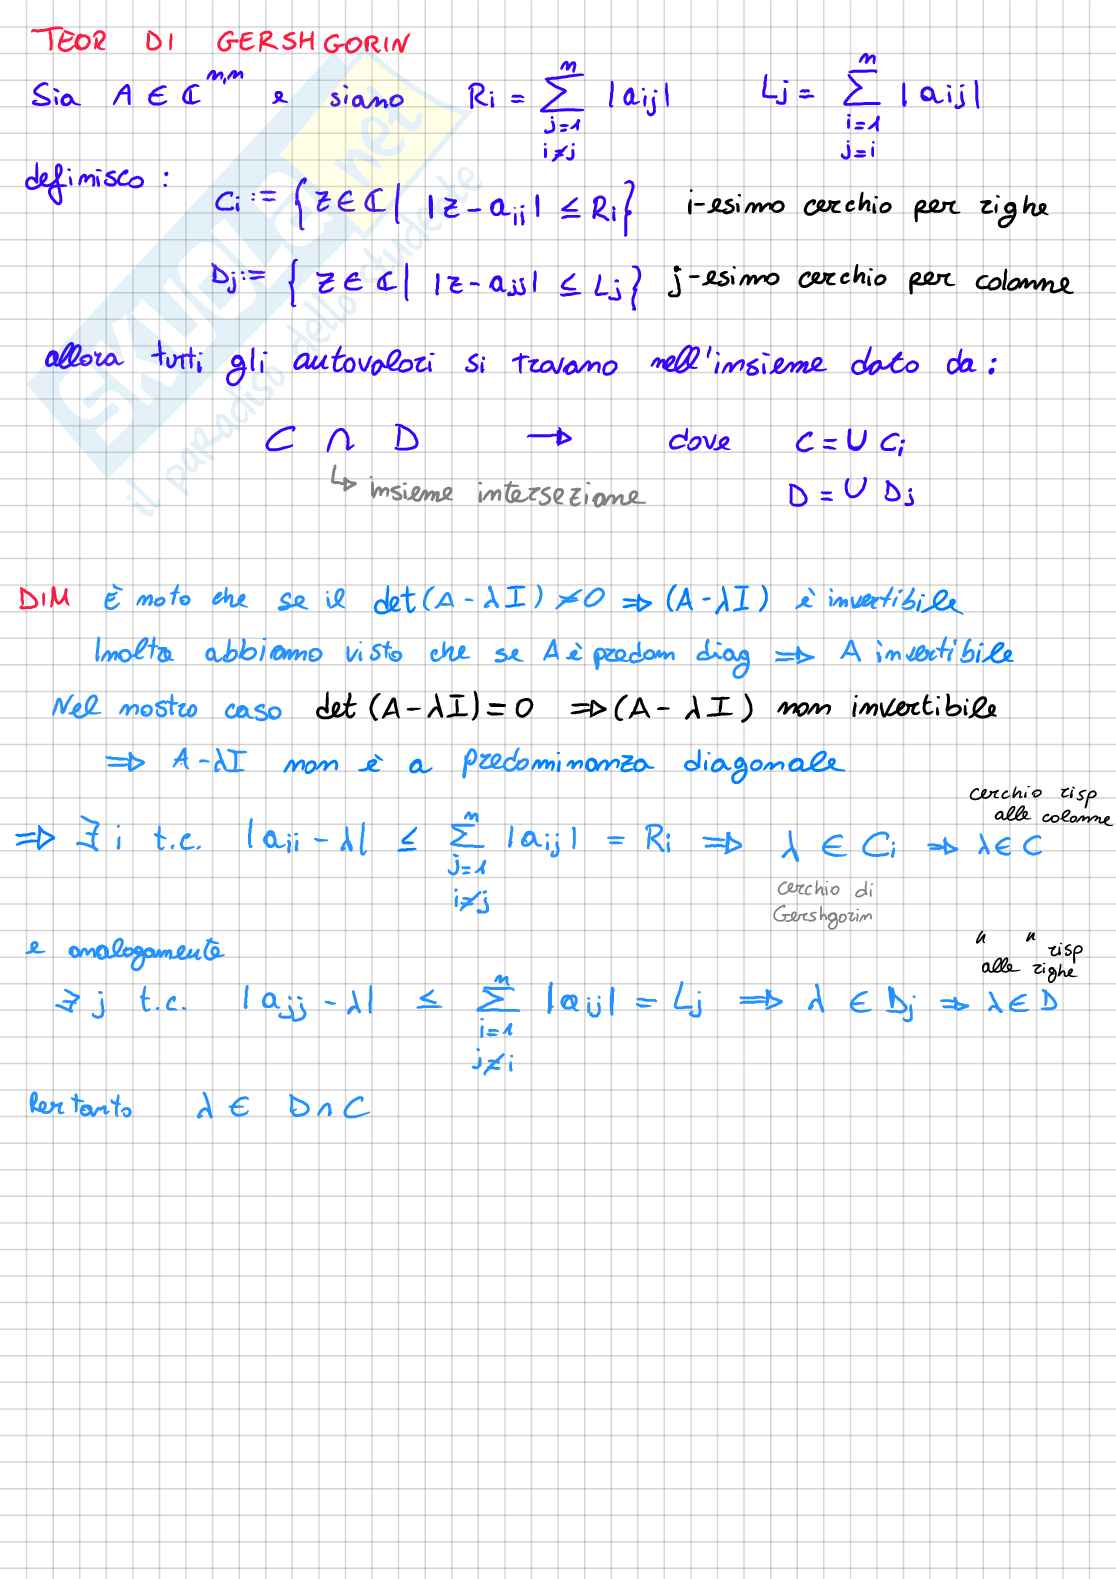 TEOR DI GERSHGORIN
Sia A ∈ ℂ^{n,n} e siano Ri = ∑_{j=1, i≠j}^{n} |aij| Lj = ∑_{i=1, j=i}^{n} |aij|
definisco :
Ci := {z∈ℂ | |z-aii| ≤ Ri} i-esimo cerchio per righe
Dj := {z∈ℂ | |z-ajj| ≤ Lj} j-esimo cerchio per colonne
allora tutti gli autovalori si trovano nell'insieme dato da :
C ∩ D → dove C = U Ci
↳ insieme intersezione D = U Dj
DIM È noto che se il det(A-λI) ≠0 ⇒ (A-λI) è invertibile
Inoltre abbiamo visto che se A è predom diag ⇒ A invertibile
Nel nostro caso det (A-λI)=0 ⇒ (A-λI) non invertibile
⇒ A-λI non è a predominanza diagonale
cerchio risp
alle colonne
⇒ ∃ i t.c. |aii - λ| ≤ ∑_{j=1, i≠j}^{n} |aij| = Ri ⇒ λ ∈ Ci ⇒ λ∈C
cerchio di
Gershgorin
e analogamente
" " risp
alle righe
∃ j t.c. |ajj - λ| ≤ ∑_{i=1, j≠i}^{n} |aij| = Lj ⇒ λ ∈ Dj ⇒ λ∈D
Pertanto λ ∈ D∩C
SKUOLA.net
il paradiso dello studente